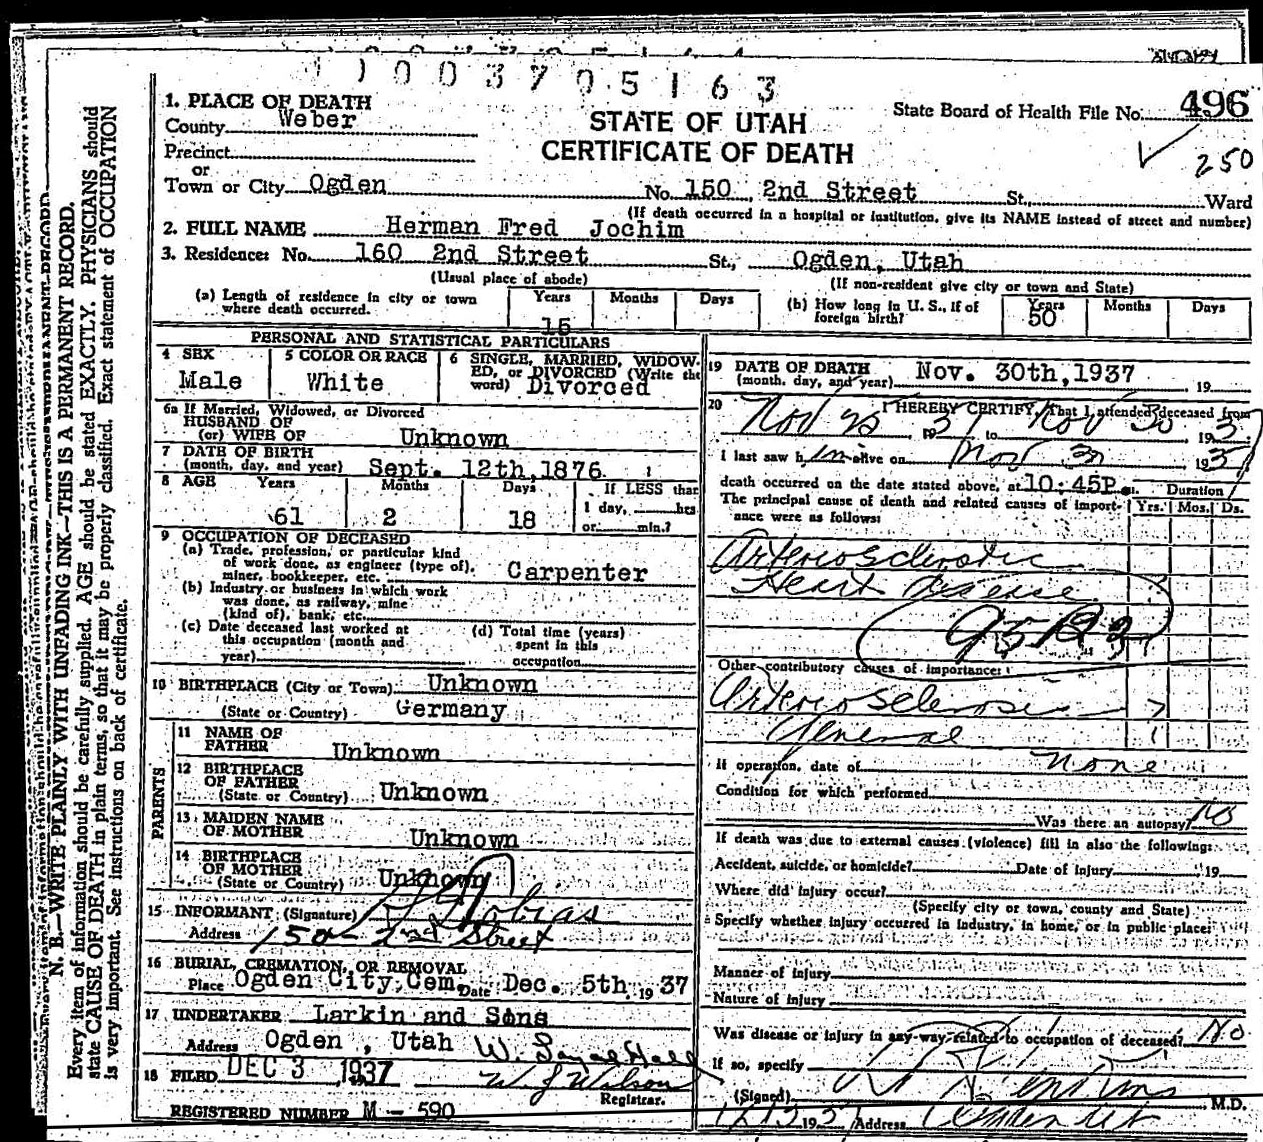 1003705163
1. PLACE OF DEATH
County Weber
Precinct
or
Town or City Ogden No. 150 2nd Street St., Ward
STATE OF UTAH
CERTIFICATE OF DEATH
State Board of Health File No. 496
250
(If death occurred in a hospital or institution, give its NAME instead of street and number)
2. FULL NAME Herman Fred Jochim
3. Residence: No. 160 2nd Street St., Ogden, Utah
(Usual place of abode) (If non-resident give city or town and State)
(a) Length of residence in city or town where death occurred. Years 15 Months Days
(b) How long in U. S., if of foreign birth? Years 50 Months Days
PERSONAL AND STATISTICAL PARTICULARS
4 SEX Male
5 COLOR OR RACE White
6 SINGLE, MARRIED, WIDOWED, or DIVORCED (Write the word) Divorced
6a If Married, Widowed, or Divorced
HUSBAND OF
(or) WIFE OF Unknown
7 DATE OF BIRTH
(month, day, and year) Sept. 12th, 1876
8 AGE Years 61 Months 2 Days 18 If LESS than 1 day, hrs or min.?
9 OCCUPATION OF DECEASED
(a) Trade, profession, or particular kind
of work done, as engineer (type of),
miner, bookkeeper, etc. Carpenter
(b) Industry or business in which work
was done, as railway, mine
(kind of), bank, etc.
(c) Date deceased last worked at
this occupation (month and
year)
(d) Total time (years)
spent in this
occupation
10 BIRTHPLACE (City or Town) Unknown
(State or Country) Germany
PARENTS
11 NAME OF
FATHER Unknown
12 BIRTHPLACE
OF FATHER
(State or Country) Unknown
13 MAIDEN NAME
OF MOTHER Unknown
14 BIRTHPLACE
OF MOTHER
(State or Country) Unknown
15 INFORMANT (Signature)
Address 150 - 2nd Street
16 BURIAL, CREMATION, OR REMOVAL
Place Ogden City Cem. Date Dec. 5th, 1937
17 UNDERTAKER Larkin and Sons
Address Ogden, Utah
18 FILED DEC 3, 1937 W. J. Wilson
Registrar.
REGISTERED NUMBER M - 590
19 DATE OF DEATH
(month, day, and year) Nov. 30th, 1937, 19
20 I HEREBY CERTIFY, That I attended deceased from
Nov 1937 to Nov 30 1937
I last saw him alive on Nov 30 1937
death occurred on the date stated above, at 10:45P m. Duration
The principal cause of death and related causes of importance were as follows: Yrs. Mos. Ds.
Arteriosclerotic
Heart Disease
Other contributory causes of importance:
Arteriosclerosis
General
If operation, date of None
Condition for which performed
Was there an autopsy? No
If death was due to external causes (violence) fill in also the following:
Accident, suicide, or homicide? Date of Injury 19
Where did injury occur?
(Specify city or town, county and State)
Specify whether injury occurred in industry, in home, or in public place:
Manner of Injury
Nature of Injury
Was disease or injury in any way related to occupation of deceased? No
If so, specify
(Signed) M.D.
Address
N. B.—WRITE PLAINLY WITH UNFADING INK—THIS IS A PERMANENT RECORD.
Every item of information should be carefully supplied. AGE should be stated EXACTLY. PHYSICIANS should
state CAUSE OF DEATH in plain terms, so that it may be properly classified. Exact statement of OCCUPATION
is very important. See instructions on back of certificate.